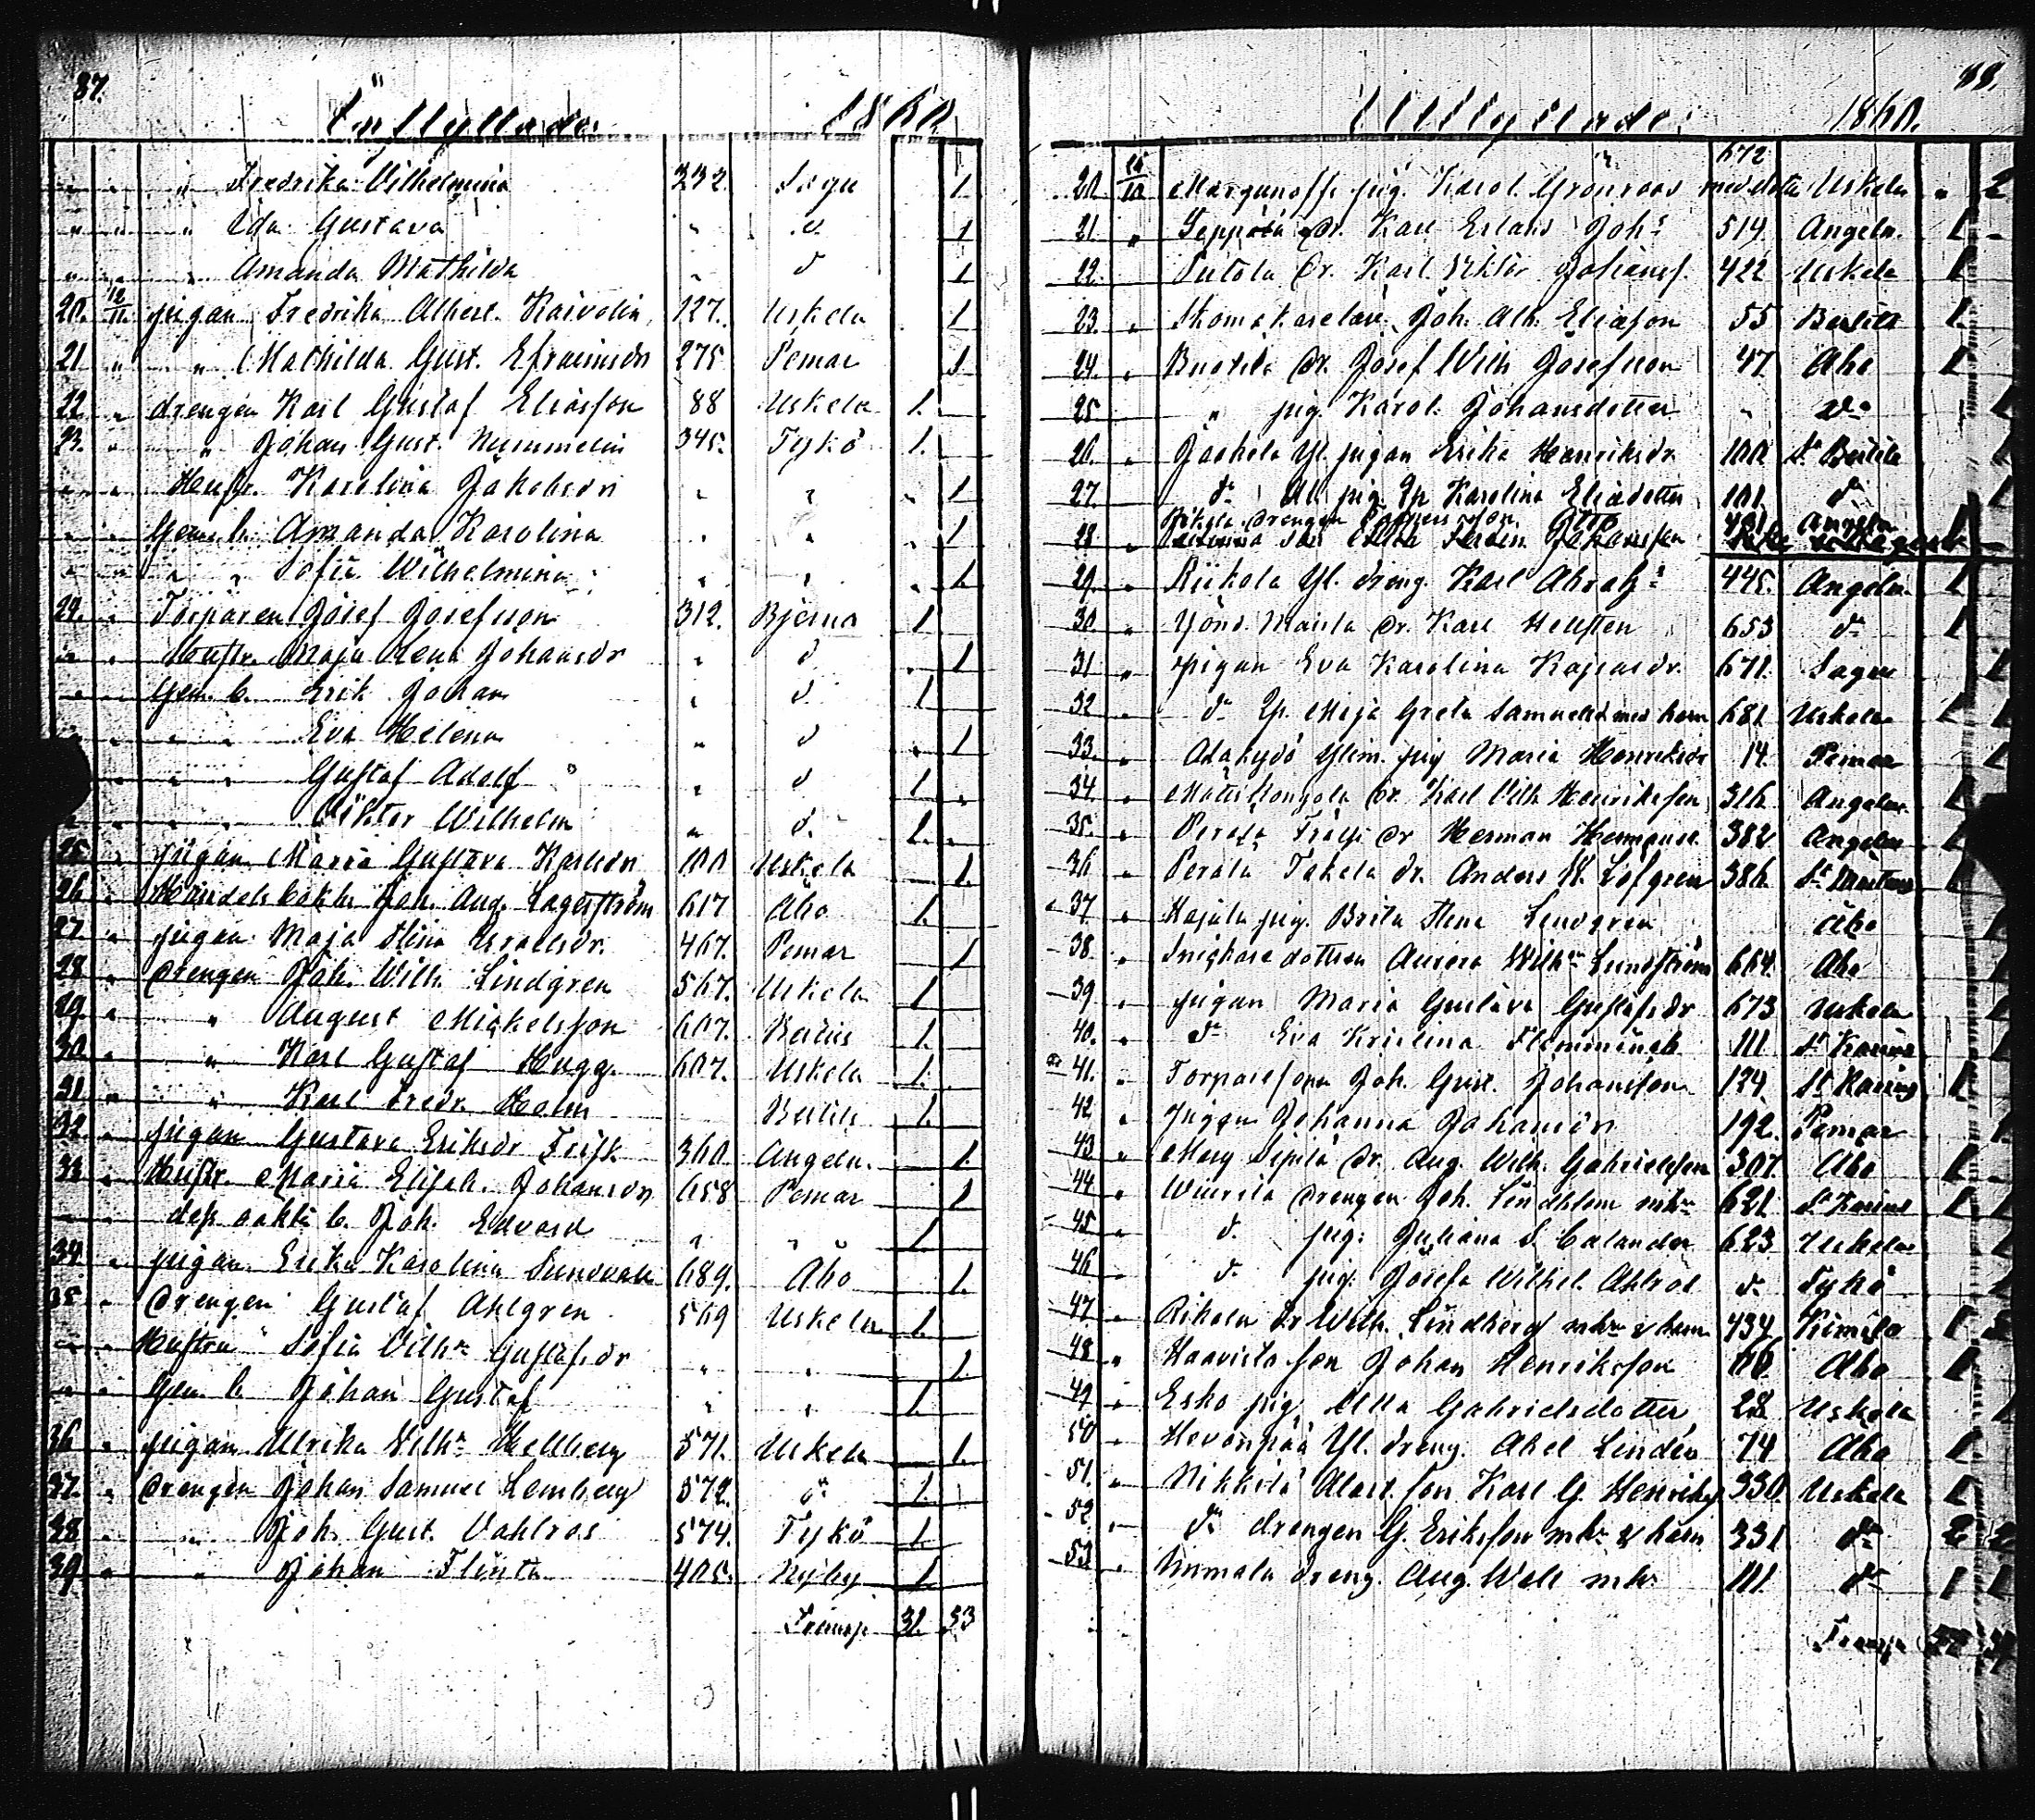 87.
Inflyttade 1860
" " " Fredrika Vilhelmina 232. Sagu 1.
" " " Ida Gustava " d. 1
" " " Amanda Mathilda " d 1
20. 12/11 pigan Fredrika Albert. Kaivolin 127. Uskela 1
21 " " Mathilda Gust. Efraimsdr 275 Pemar 1
22 " drengen Karl Gustaf Eliasson 88 Uskela 1.
23. " " Johan Gust. Nummelin 345. Tykö 1.
" " Hustr. Karolina Jakobsdr " " 1
" " Gem. b. Amanda Karolina " " 1
" " " " Sofia Wilhelmina " " 1.
24. " Torparen Josef Josefsson 312. Bjerno 1
" " Hustr. Maja Lena Johansdr " d 1
" " Gem. b. Erik Johan " d. 1
" " " Eva Helena " d 1
" " " Gustaf Adolf " d 1
" " " Viktor Wilhelm " d. 1.
25 " pigan Maria Gustava Karlsdr 100 Uskela 1.
26 " Handels bokh. Joh. Aug. Lagerström 617 Åbo 1.
27. " pigan Maja Stina Israelsdr. 467. Pemar 1
28 " drengen Joh. Wilh. Lindgren 567. Uskela 1
29. " " August Mickelsson 607. 1.
30 " " Karl Gustaf Hugg. 607. Uskela 1.
31 " " Karl Fredr. Holm 1.
32. " pigan Gustava Eriksdr Frisk 360 Angeln. 1.
33 " Hustr. Maria Elisab. Johansdr 658 Pemar 1
" " dess oäkta b. Joh. Edvard " " 1
34 " pigan Erika Karolina Sundvall 689. Åbo 1.
35 " drengen Gustaf Ahlgren 569 Uskela 1.
" " Hustrun Sofia Vilhna Gustafsdr " " 1.
" " Gem. b. Johan Gustaf " " 1.
36 " pigan Ulrika Vilhna Hellberg 571. Uskela 1.
37. " drengen Johan Samuel Lemberg 572. d: 1.
38 " " Joh. Gust. Vahlros 574. Tykö 1.
39 " " Johan Flinta 405. Nyby 1
Transp. 31. 53
88.
Utflyttade: 1860.
20. 15/10 pig. Karol. Grönroos med dotter 672 Uskela " 2
21. " Seppälä dr. Karl Erland Joh: 514 Angeln. 1
22. " dr. Karl Viktor Johanss. 422 Uskela 1
23. " Skomakarelär. Joh. Alb. Eliasson 55 1.
24. " dr. Josef Wilh Josefsson 47 Åbo 1
25 " " pig. Karol. Johansdotter " do 1
26. " Yl. pigan Erika Henriksdr 100 1
27. " do Al. pig. Karolina Eliedotter 101. do 1
28 " drengen Angeln 1
29. " Riikola Yl. dreng. Karl Abrah: 445. Angeln. 1
30. " dr. Karl Hellsten 653 do 1
31 " pigan Eva Karolina 671. Sagu 1
32 " do Maja Greta Samuelsd med barn 681 Uskela 1 1
33. " pig Maria Henriksdr 14. Pemar 1
34 " dr. Karl Vilh Henriksson 316 Angeln 1
35. " dr Herman Hermanss. 382 Angeln 1
36 " Perälä dr. Anders W. Löfgren 386. St Mårtens 1
37 " Hajala pig. Brita Lena Lindgren Åbo 1
38. " Snickare dottren Aurora Wilhna Lundström 664. Åbo 1
39 " pigan Maria Gustava Gustafsdr 673 Uskela 1
40. " do Eva Kristina 111 St Karins 1
41. " Torparesonen Joh. Gust. Johansson 124 St Karins 1
42. " pigan Johanna Johansdr 192. Pemar 1.
43 " Sipilä dr. Aug. Wilh. Gabrielsson 307. Åbo 1
44 " drengen Joh. Lindblom mhu 621 St Karins 1 1
45 " d. pig. Juliana S. Calander 623 Uskela 1
46 " d. pig. Josefa Wilhel. Ahlroos d. Tykö 1
47 " Rikala dr Wilh. Lindberg mhu & barn 434 Kimito 1
48 " Haavisto son Johan Henriksson 66 Åbo 1
49 " Esko pig. Ulla Gabrielsdotter 28 Uskela 1
50 " Hevonpää Yl. dreng. Abel Lindén 74 Åbo 1
51. " Nikkilä son Karl G. Henriks 330. Uskela 1
52 " do drengen G. Eriksson mhu & barn 331 do 2 2
53. " dreng. Aug. Well mhu 111. do 1 1
Transp